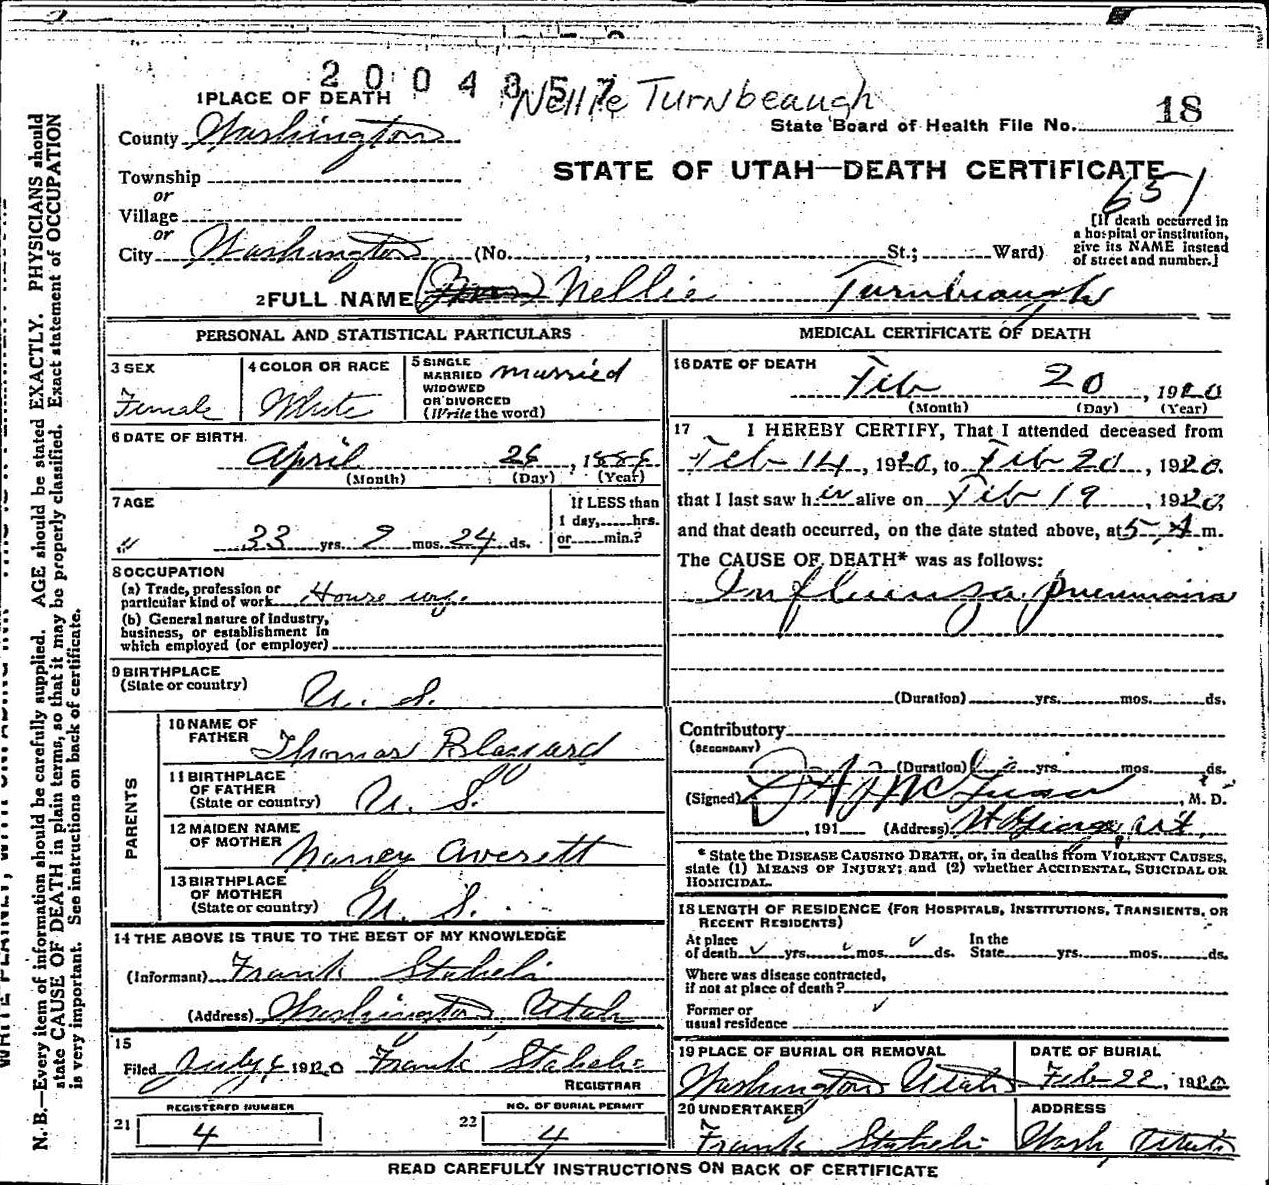 2004357 Nellie Turnbeaugh
1 PLACE OF DEATH
18
State Board of Health File No.
County Washington
STATE OF UTAH—DEATH CERTIFICATE
651
Township
or
Village
or
[If death occurred in
a hospital or institution,
give its NAME instead
of street and number.]
City Washington (No. , St.; Ward)
2 FULL NAME (Mrs) Nellie Turnbeaugh
PERSONAL AND STATISTICAL PARTICULARS
3 SEX
Female
4 COLOR OR RACE
White
5 SINGLE
MARRIED
WIDOWED
OR DIVORCED
(Write the word)
married
6 DATE OF BIRTH
April 26, 1886
(Month) (Day) (Year)
7 AGE
33 yrs. 9 mos. 24 ds.
If LESS than
1 day, hrs.
or min.?
8 OCCUPATION
(a) Trade, profession or
particular kind of work House wf.
(b) General nature of industry,
business, or establishment in
which employed (or employer)
9 BIRTHPLACE
(State or country) U. S.
PARENTS
10 NAME OF
FATHER Thomas Blazzard
11 BIRTHPLACE
OF FATHER
(State or country) U. S.
12 MAIDEN NAME
OF MOTHER Nancy Averett
13 BIRTHPLACE
OF MOTHER
(State or country) U. S.
14 THE ABOVE IS TRUE TO THE BEST OF MY KNOWLEDGE
(Informant) Frank Staheli
(Address) Washington Utah
15
Filed July 6 1920 Frank Staheli
REGISTRAR
REGISTERED NUMBER
21 4
NO. OF BURIAL PERMIT
22 4
MEDICAL CERTIFICATE OF DEATH
16 DATE OF DEATH
Feb 20, 1920
(Month) (Day) (Year)
17 I HEREBY CERTIFY, That I attended deceased from
Feb 14, 1920, to Feb 20, 1920.
that I last saw her alive on Feb 19, 1920,
and that death occurred, on the date stated above, at 5 A m.
The CAUSE OF DEATH* was as follows:
Influenza pneumonia
(Duration) yrs. mos. ds.
Contributory
(SECONDARY)
(Duration) yrs. mos. ds.
(Signed) M. D.
, 191 (Address) St George, Ut.
* State the DISEASE CAUSING DEATH, or, in deaths from VIOLENT CAUSES,
state (1) MEANS OF INJURY; and (2) whether ACCIDENTAL, SUICIDAL OR
HOMICIDAL.
18 LENGTH OF RESIDENCE (FOR HOSPITALS, INSTITUTIONS, TRANSIENTS, OR
RECENT RESIDENTS)
At place
of death yrs. mos. ds.
In the
State yrs. mos. ds.
Where was disease contracted,
if not at place of death?
Former or
usual residence
19 PLACE OF BURIAL OR REMOVAL
Washington Utah
DATE OF BURIAL
Feb 22, 1920
20 UNDERTAKER
Frank Staheli
ADDRESS
Wash Utah
READ CAREFULLY INSTRUCTIONS ON BACK OF CERTIFICATE
N. B.—Every item of information should be carefully supplied. AGE should be stated EXACTLY. PHYSICIANS should
state CAUSE OF DEATH in plain terms, so that it may be properly classified. Exact statement of OCCUPATION
is very important. See instructions on back of certificate.